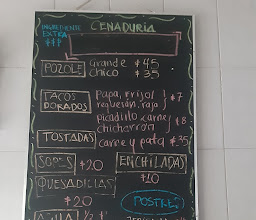 INGREDIENTE
EXTRA
CENADURÍA
POZOLE Grande $45
Chico $35
TACOS DORADOS
Papa, frijol
requesón, rajas $7
Picadillo carne
chicharron $8
TOSTADAS carne y pata $35
SOPES $20 ENCHILADAS
$10
QUESADILLAS
$20
POSTRES
AGUA